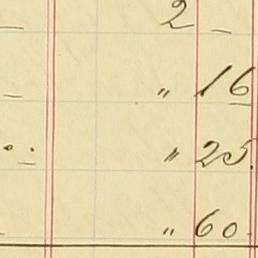 2 –
– " 16
" 25.
– " 60.